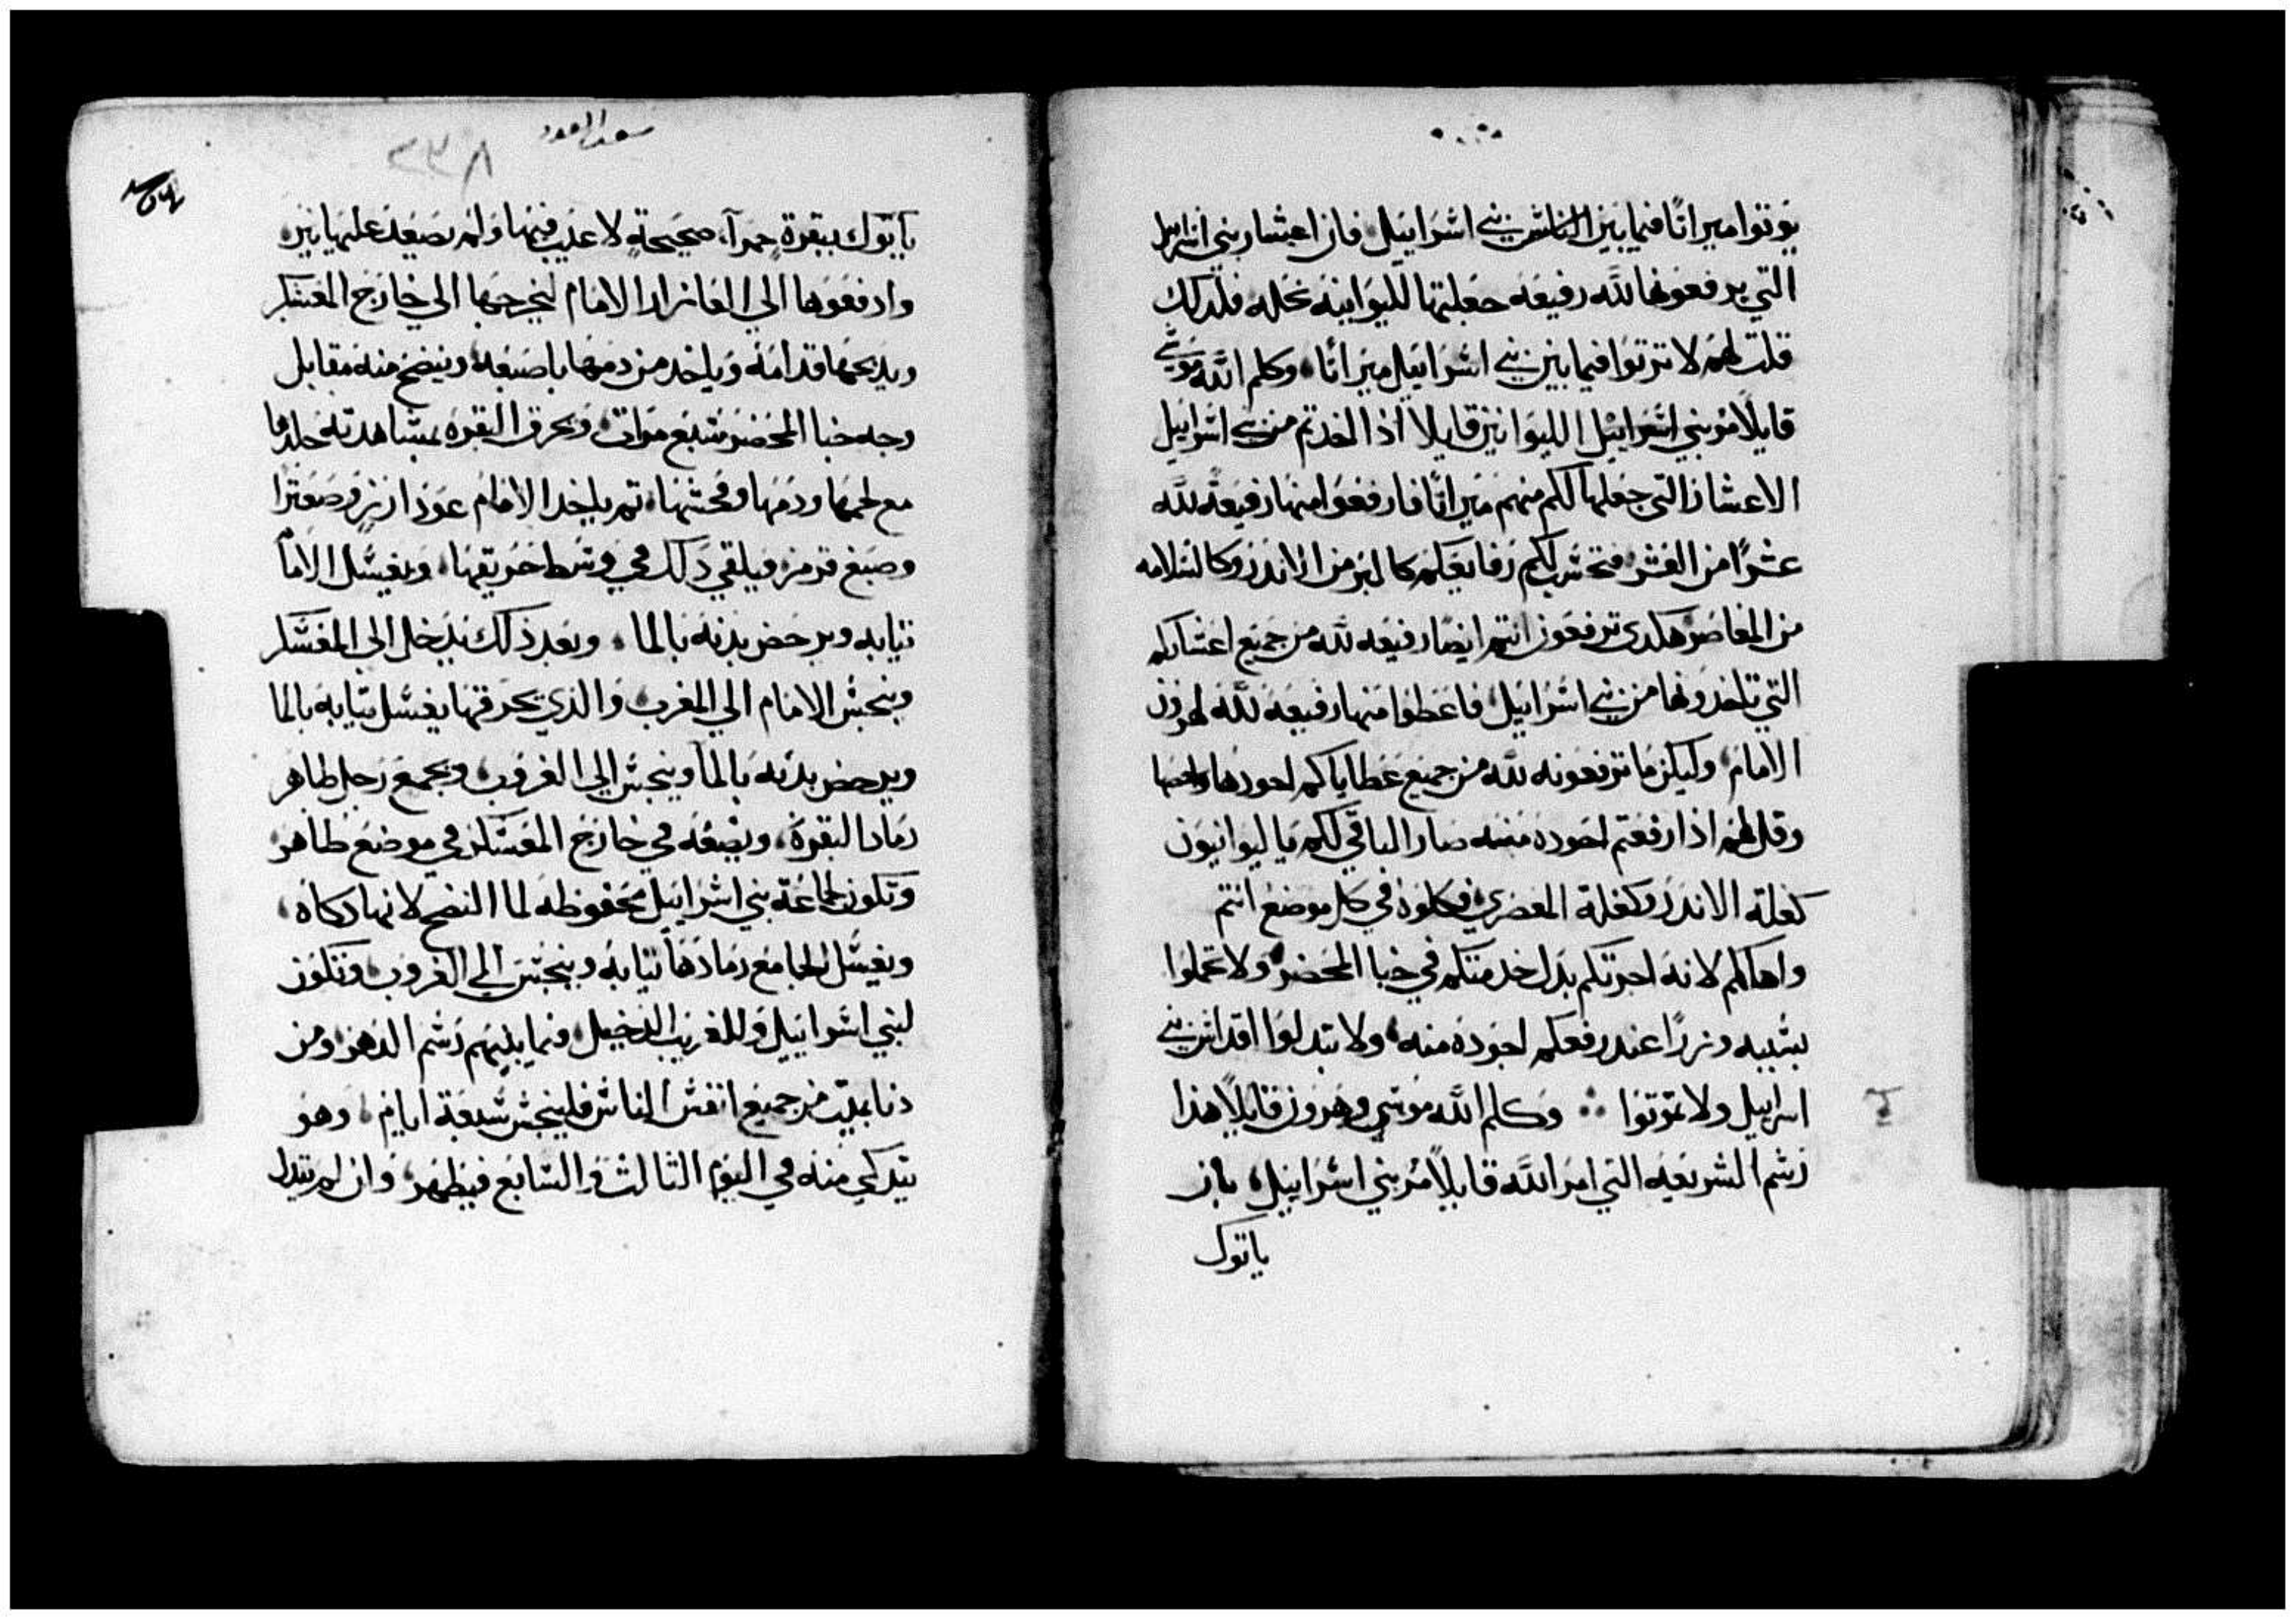 يورتوا ميراثا فيما بين الناس بني اسرائيل فان اعشار بني اسرايل
التي يرفعونها لله رفيعه جعلتها لليوانيه نحله فلدلك
قلت لهم لا ترتوا فيما بين بني اسرائيل ميراثا، وكلم الله موسي
قايلا مر بني اسرائيل الليوانيين قايلا اذا اخدتم من بني اسرائيل
الاعشار التي جعلها لكم منهم ميراثا فارفعوا منها رفيعة لله
عشرا من العشر فتحسب لكم رفايعكم كالبر من الاندر وكالسلامه
من المعاصر هكدى ترفعون انتم ايضا رفيعه لله من جميع اعشاركم
التي تاخدونها من بني اسرائيل فاعطوا منها رفيعه لله لهرون
الامام وليكن ما ترفعونه لله من جميع عطاياكم اجودها واخصها
وقل لهم اذا رفعتم اجوده منه صار الباقي لكم يا ليوانيون
كغلة الاندر وكغلة المعصره فكلوه في كل موضع انتم
واهالكم لانه اجرتكم بدل خدمتكم في خبا المحضر ولا تحملوا
بسببه وزرا عند رفعكم اجوده منه ولا تبدلوا اقداس بني
اسرايل ولا تموتوا ∴ وكلم الله موسي وهرون قايلا هذا
رسم الشريعه التي امر الله قايلا مر بني اسرائيل بان
ياتوك
سعد السعود
٢٣٨
ياتوك ببقرة حمرآ، صحيحة لا عيب فيها ولم يصعد عليها نير
وادفعوها الي العازار الامام ليخرجها الي خارج المعسكر
ويدبحها قدامه وياخد من دمها باصبعه وينضح منه مقابل
وجه خبا المحضر سبع مرات، ويحرق البقره بمشاهدته جلدها
مع لحمها ودمها وفحثها، تم ياخد الامام عود ارز وصعترا
وصبغ قرمز فيلقي دلك في وسط حريقها، ويغسل الامام
تيابه ويرحض بدنه بالما، وبعد ذلك يدخل الي المعسكر
وينجس الامام الي المغرب، والذي يحرقها يغسل تيابه بالما
ويرحض بدنه بالما وينجس الي الغروب ويجمع رجل طاهر
رماد البقرة، ويضعه في خارج المعسكر في موضع طاهر
وتكون لجماعة بني اسرائيل محفوظه لما النضح لانها دكاه،
ويغسل الجامع رمادها تيابه وينجس الي الغروب وتكون
لبني اسرائيل وللغريب الدخيل فيما بينهم رسم الدهر، ومن
دنا بميت من جميع انفس الناس فلينجس سبعة ايام، وهو
يتدكي منه في اليوم الثالث والسابع فيطهر، وان لم يتدك